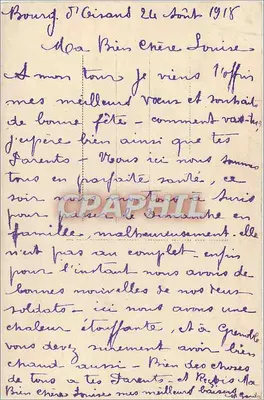 Bourg d'Oisand 24 Août 1918
Ma Bien Chère Louise
A mon tour je viens t'offrir
mes meilleurs vœux et souhaits
de bonne fête - comment vas-tu,
j'espère bien ainsi que tes
Parents - Nous ici nous sommes
tous en parfaite santé. ce
soir
CPAPHIL
pour passer le Dimanche en
famille, malheureusement elle
n'est pas au complet enfin
pour l'instant nous avons de
bonnes nouvelles de nos deux
soldats - ici nous avons une
chaleur étouffante, et à Grenoble
vous devez surement avoir bien
chaud aussi - Bien des choses
de tous à tes Parents - et Reçois Ma
Bien Chère Louise mes meilleurs baisers